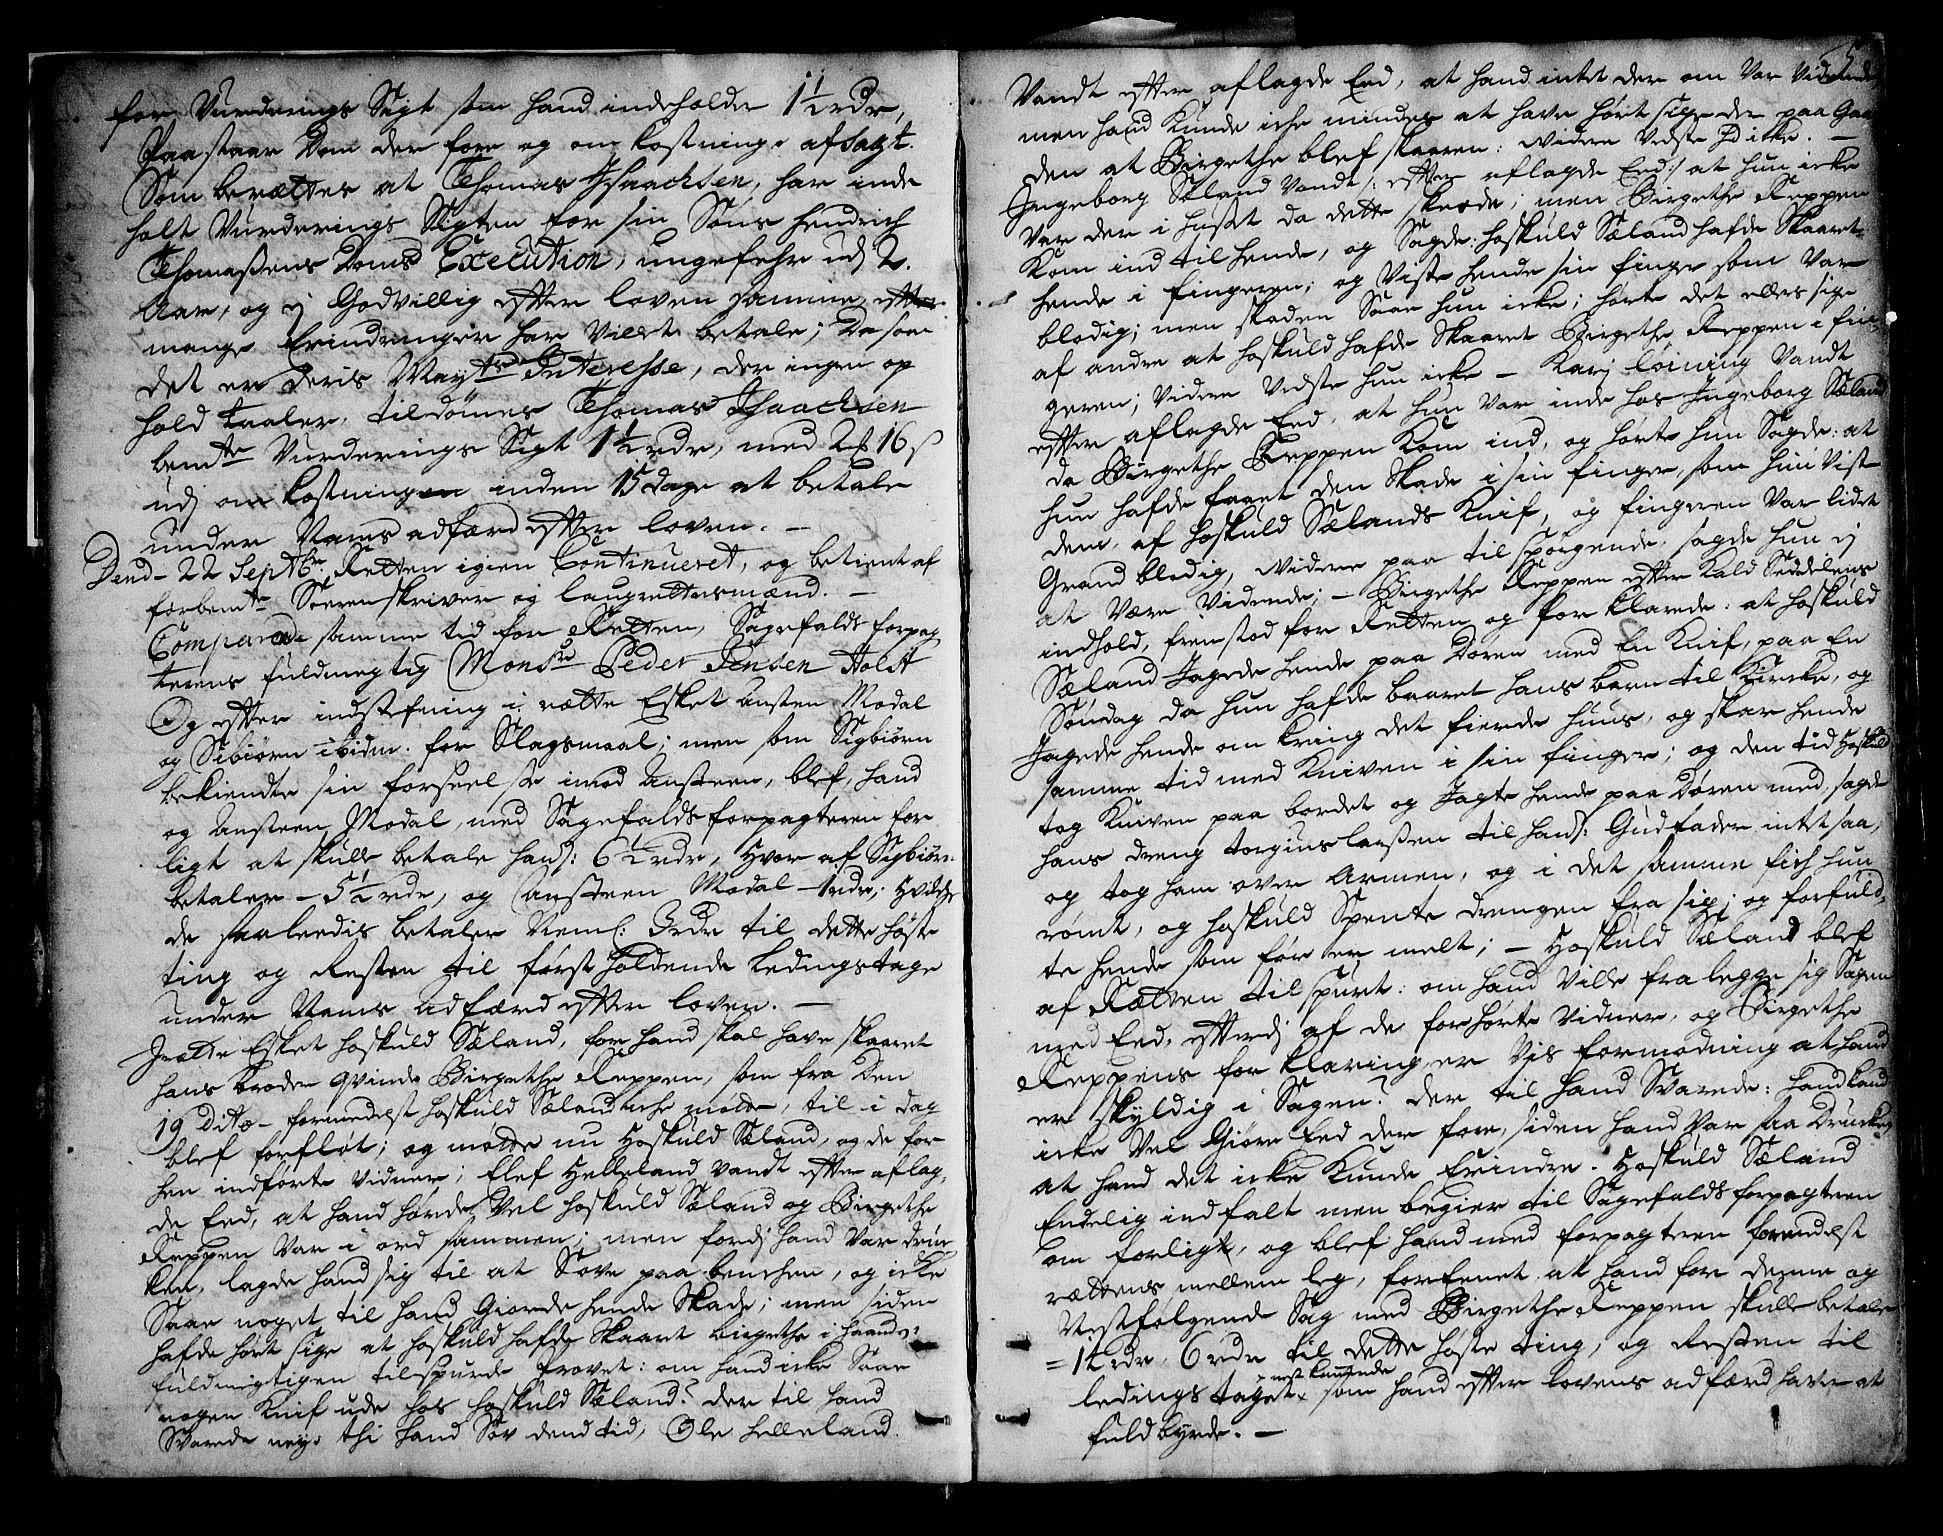 for Vurderings Sigt som hand indeholder 1½ rdr,
Paastaar Dom der fore og omkostning afsagt.
Som berættes at Thomas Isaachsen, har inde
holt Vurderings Sigten for sin Søns Hendrich
Thomassens Doms Execution, ungefehr udj 2
Aar, og ej Godvillig efter loven samme efter
mange Erindringer har villet betale; Da som
det er deris Mayts Interesse, der ingen op
hold taaler, tildømes Thomas Isaachsen
bemte Vurderings Sigt 1½ rdr, med 2 16 s
udj omkostningen inden 15 dage at betale
under Nams adfærd efter loven. –
Dend 22 Septbr Retten igien Continueret, og betient af
forbemte Sorenskriver og laugrettesmænd. –
Comparerede samme tid for Retten, Sagefalds forpag
terens fuldmegtig Monsr Peder Jensen Holst
Og efter indstefning i rette Esket Ansten Modal
og Sibiørn ibidm. for Slagsmaal; men som Sigbiørn
bekiendte sin forseelse imod Ansteen, blef, hand
og Ansteen Modal, med Sagefalds forpagteren for
ligt at skulle betale hans: 6½ rdr, hvor af Sigbiørn
betaler – 5½ rdr, og Ansteen Modal – 1 rdr; hvilche
de saaleedis betaler Neml: 3 rdr til dette høste
ting og Resten til først holdende Ledingstage
under Nams adfærd efter loven. –
I rette Esket Hoskuld Sæland, for hand skal have skaaret
hans broder qvinde Birgethe Reppen, som fra Den
19 dito – formedelst Hoskuld Sæland iche møtte, til i dag
blef forfløt; og møtte nu Hoskuld Sæland, og de for
hen indførte Vidner; Elef Helleland Vandt efter aflag,
de Eed, at hand hørde Vel Hoskuld Sæland og Birgethe
Reppen Var i ord sammen; men fordj hand Var druc
ken, lagde hand sig til at Sove paa benchen, og icke
Saae noget til hand Giorde hende Skade; men siden
hafde hørt sige at Hoskuld hafde Skaart Birgethe i haand:
fuldmegtigen tilspurde Provet: om hand icke Saae
nogen Knif ude hos Hoskuld Sæland? der til hand
Svarede ney: thi hand Sov dend tid, Ole Helleland
5
Vandt efter aflagde Eed, at hand intet der om Var Vidende,
men hand Kunde iche mindes at have hørt sige der paa Gaa
den at Birgethe blef skaaren: Videre Vedste D icke. –
Ingeborg Sæland Vandt /: efter aflagde Eed:/ at hun icke
Var der i huset da dette skeede; men Birgethe Reppen
Kom ind til hende, og Sagde: Hoskuld Sæland hafde Skaaret
hende i fingeren; og Viste hende sin finger som Var
blodig; men skaden Saae hun icke; hørte det ellers sige
af andre at Hoskuld hafde Skaaret Birgethe Reppen i fin
geren; Videre Vedste hun icke – Karj Løining Vandt
efter aflagde Eed, at hun Var inde hos Ingeborg Sæland
da Birgethe Reppen Kom ind, og hørte hun Sagde: at
hun hafde faaet den Skade i sin finger, som hun Viste
dem, af Hoskuld Sælands Knif, og fingeren Var lidet
Grand blodig, Videre paa tilspørgende: sagde hun ej
at Være Vidende; – Birgethe Reppen efter Kald Seddelens
indhold, fremstod for Retten og forklarede: at Hoskuld
Sæland Jagede hende paa Døren med En Knif, paa En
Søndag da hun hafde baaret hans barn til Kircke, og
Jagede hende omkring det fierde huus, og skar hende
samme tid med Kniven i sin finger; og den tid Hoskuld
tog Kniven paa bordet og Jagte hende paa Døren med, sagde
hans dreng torgius larsen til hans: Gudfader intet saa,
og tog ham over Armen, og i det samme fich hun
rømt, og Hoskuld Spente drengen fra sig; og forfuld,
te hende som før er melt; – Hoskuld Sæland blef
af Retten tilspurt: om hand Ville fralegge sig Sagen
med Eed, efterdj af de forhørte Vidner, og Birgethe
Reppens forklaring, er Vis formodning at hand
er skyldig i Sagen? der til hand Svarede: hand kand
icke Vel Giøre Eed der fore, siden hand Var saa Drucken
at hand det icke Kunde Erindre. Hoskuld Sæland
Endelig indfalt men begier til Sagefalds forpagteren
om forligt, og blef hand med forpagteren formedelst
rettens mellem leg, foreenet at hand for denne og
Nestfølgende Sag med Birgethe Reppen skulle betale
= 12 rdr, 6 rdr til dette høste ting, og Resten til
nest kommende
ledingstaget som hand efter lovens adfærd haver at
fuldbyrde. –